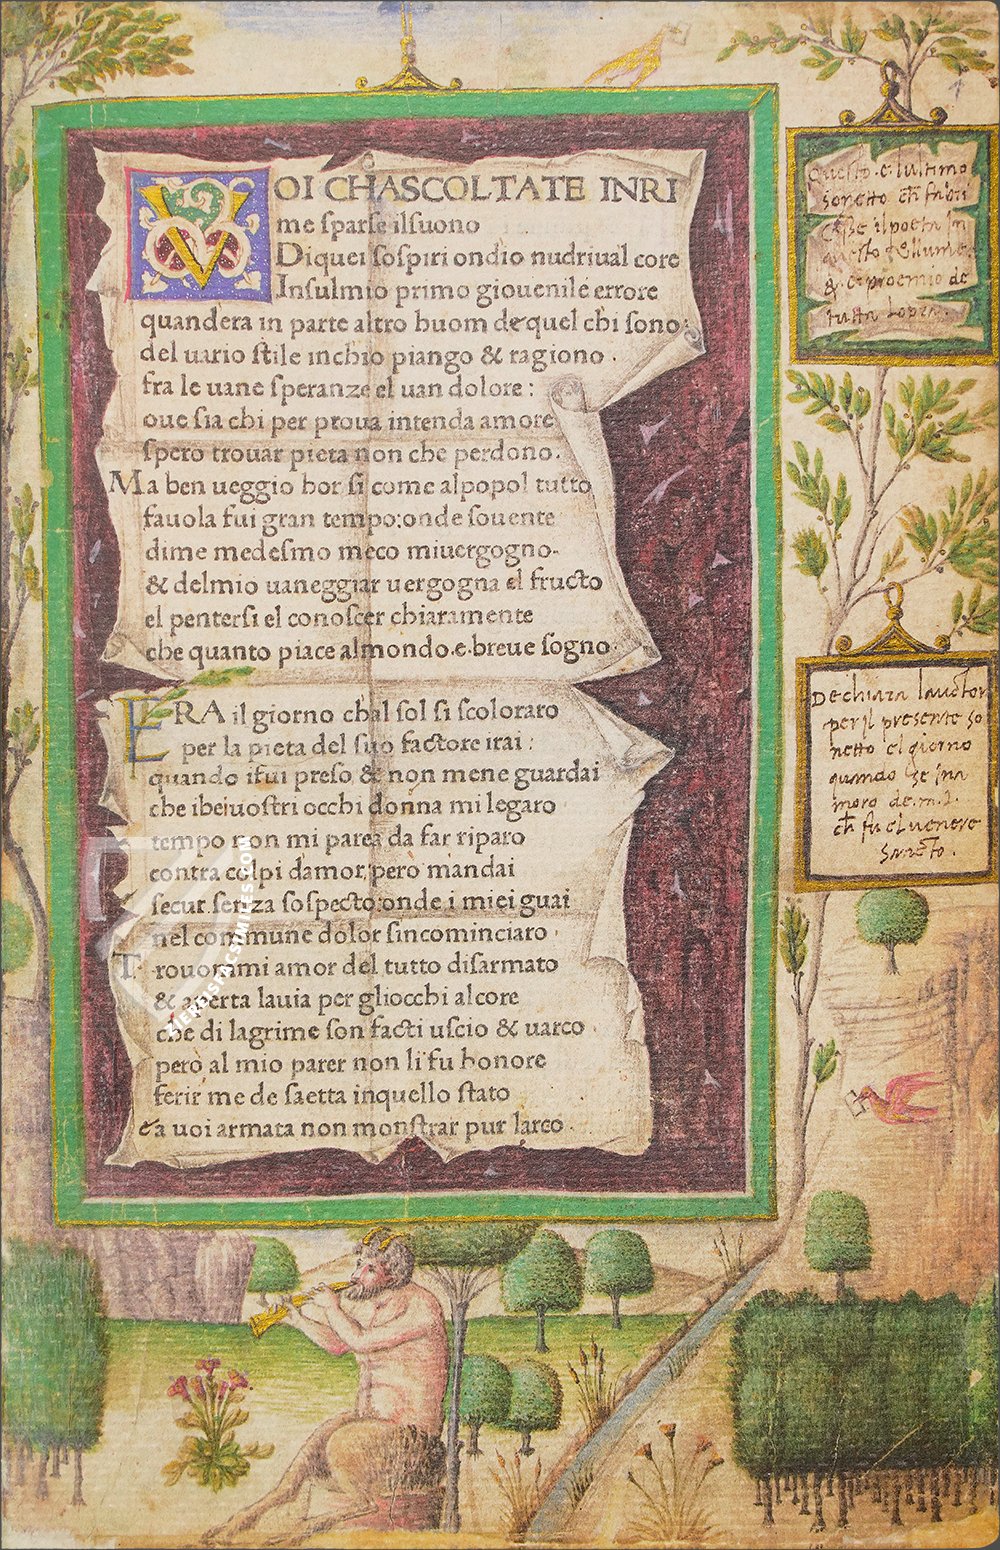 VOI CHASCOLTATE INRI
me sparse ilsuono
Diquei sospiri ondio nudriual core
Insulmio primo giouenile errore
quandera in parte altro huom de quel chi sono:
del uario stile inchio piango & ragiono .
fra le uane speranze el uan dolore :
oue sia chi per proua intenda amore
spero trouar pieta non che perdono.
Ma ben ueggio hor si come alpopol tutto
fauola fui gran tempo:onde souente
dime medesmo meco miuergogno.
& delmio uaneggiar uergogna el fructo
el pentersi el conoscer chiaramente
che quanto piace almondo.e.breue sogno.
ERA il giorno chal sol si scoloraro
per la pieta del suo factore irai :
quando ifui preso & non mene guardai
che ibeiuostri occhi donna mi legaro
tempo non mi parea da far riparo
contra colpi damor,pero mandai
secur.senza sospecto:onde i miei guai
nel commune dolor sincominciaro .
Trouommi amor del tutto disarmato
& aperta lauia per gliocchi alcore
che di lagrime son facti uscio & uarco .
però al mio parer non li fu honore
ferir me de saetta inquello stato
& a uoi armata non monstrar pur larco .
Questo.e.lultimo
sonetto ch
il poeta in
questo uollume
& e proemio de
tutta lopra.
Dechiara lauctor
per il presente so
netto el giorno
quando se ina
moro de.m.l.
ch fu el uenere
Sancto .
ZIEREISFACSIMILES.COM